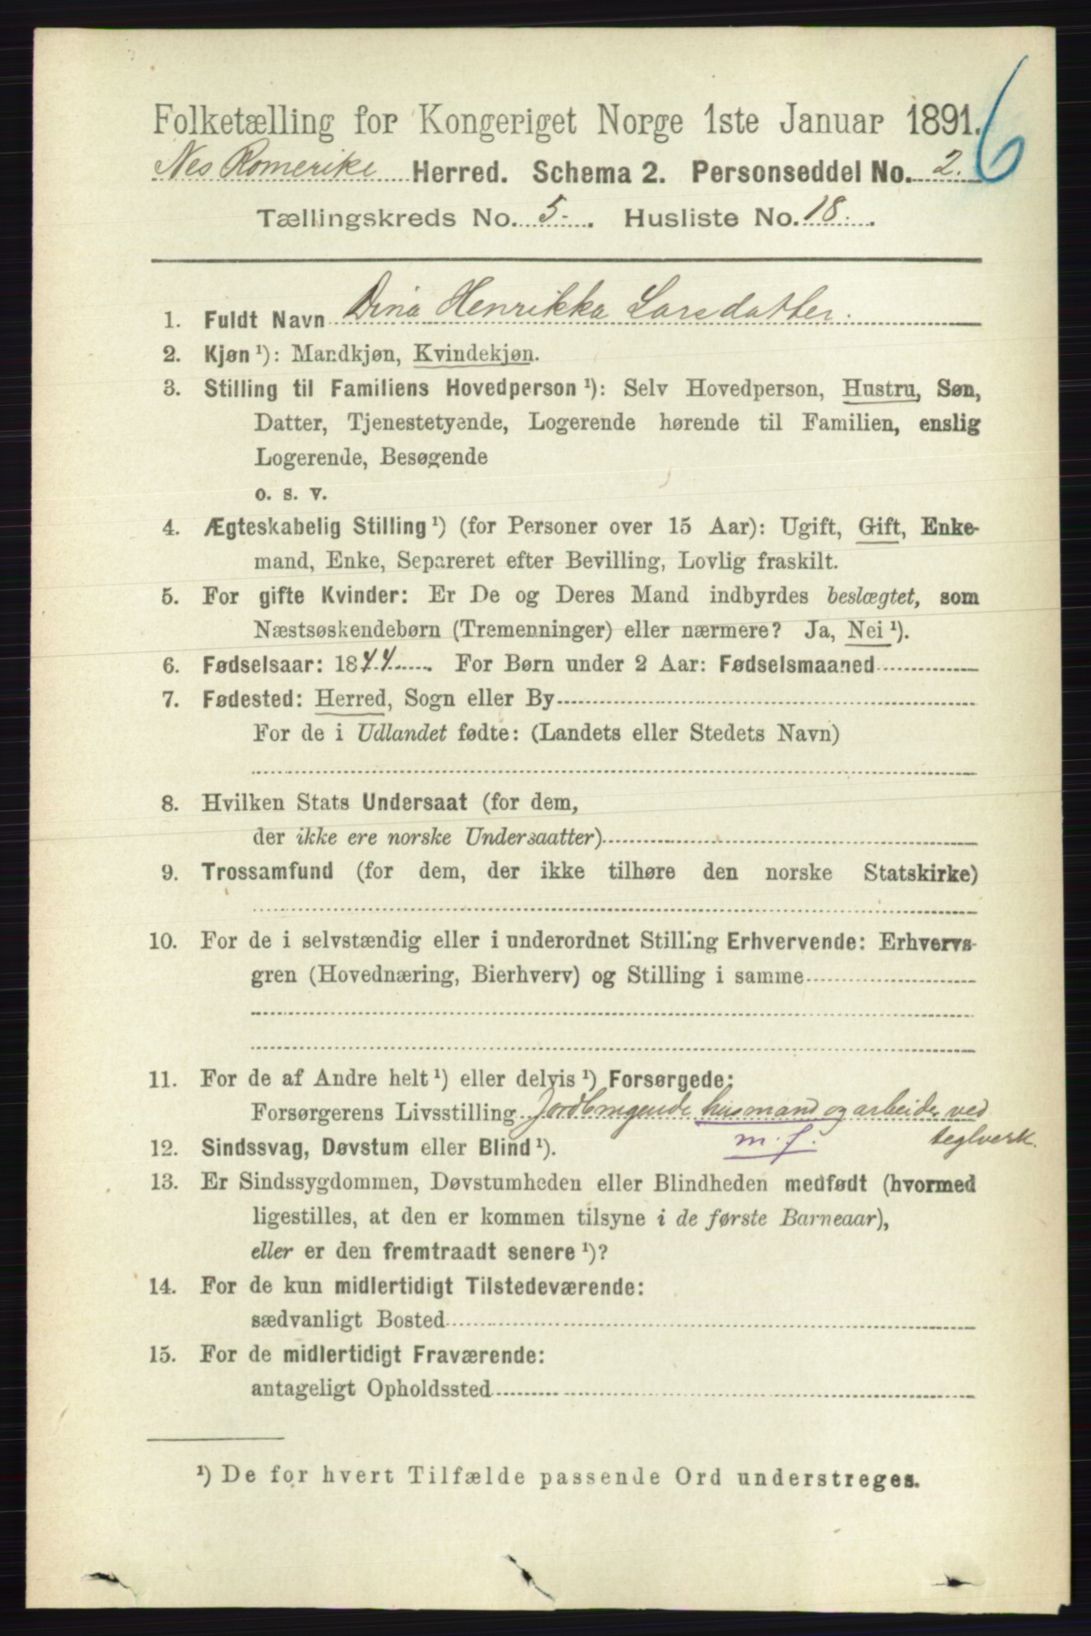 Folketælling for Kongeriget Norge 1ste Januar 1891.
6
Nes Romerike Herred. Schema 2. Personseddel No. 2.
Tællingskreds No. 5. Husliste No. 18.
1. Fuldt Navn Dina Henrikka Larsdatter.
2. Kjøn ¹): Mandkjøn, Kvindekjøn.
3. Stilling til Familiens Hovedperson ¹): Selv Hovedperson, Hustru, Søn,
Datter, Tjenestetyende, Logerende hørende til Familien, enslig
Logerende, Besøgende
o. s. v.
4. Ægteskabelig Stilling ¹) (for Personer over 15 Aar): Ugift, Gift, Enke-
mand, Enke, Separeret efter Bevilling, Lovlig fraskilt.
5. For gifte Kvinder: Er De og Deres Mand indbyrdes beslægtet, som
Næstsøskendebørn (Tremenninger) eller nærmere? Ja, Nei ¹).
6. Fødselsaar: 1844. For Børn under 2 Aar: Fødselsmaaned
7. Fødested: Herred, Sogn eller By
For de i Udlandet fødte: (Landets eller Stedets Navn)
8. Hvilken Stats Undersaat (for dem,
der ikke ere norske Undersaatter)
9. Trossamfund (for dem, der ikke tilhøre den norske Statskirke)
10. For de i selvstændig eller i underordnet Stilling Erhvervende: Erhvervs-
gren (Hovednæring, Bierhverv) og Stilling i samme
11. For de af Andre helt ¹) eller delvis ¹) Forsørgede:
Forsørgerens Livsstilling Jordbrugende husmand og arbeider ved
teglverk.
m. f.
12. Sindssvag, Døvstum eller Blind ¹).
13. Er Sindssygdommen, Døvstumheden eller Blindheden medfødt (hvormed
ligestilles, at den er kommen tilsyne i de første Barneaar),
eller er den fremtraadt senere ¹)?
14. For de kun midlertidigt Tilstedeværende:
sædvanligt Bosted
15. For de midlertidigt Fraværende:
antageligt Opholdssted
¹) De for hvert Tilfælde passende Ord understreges.